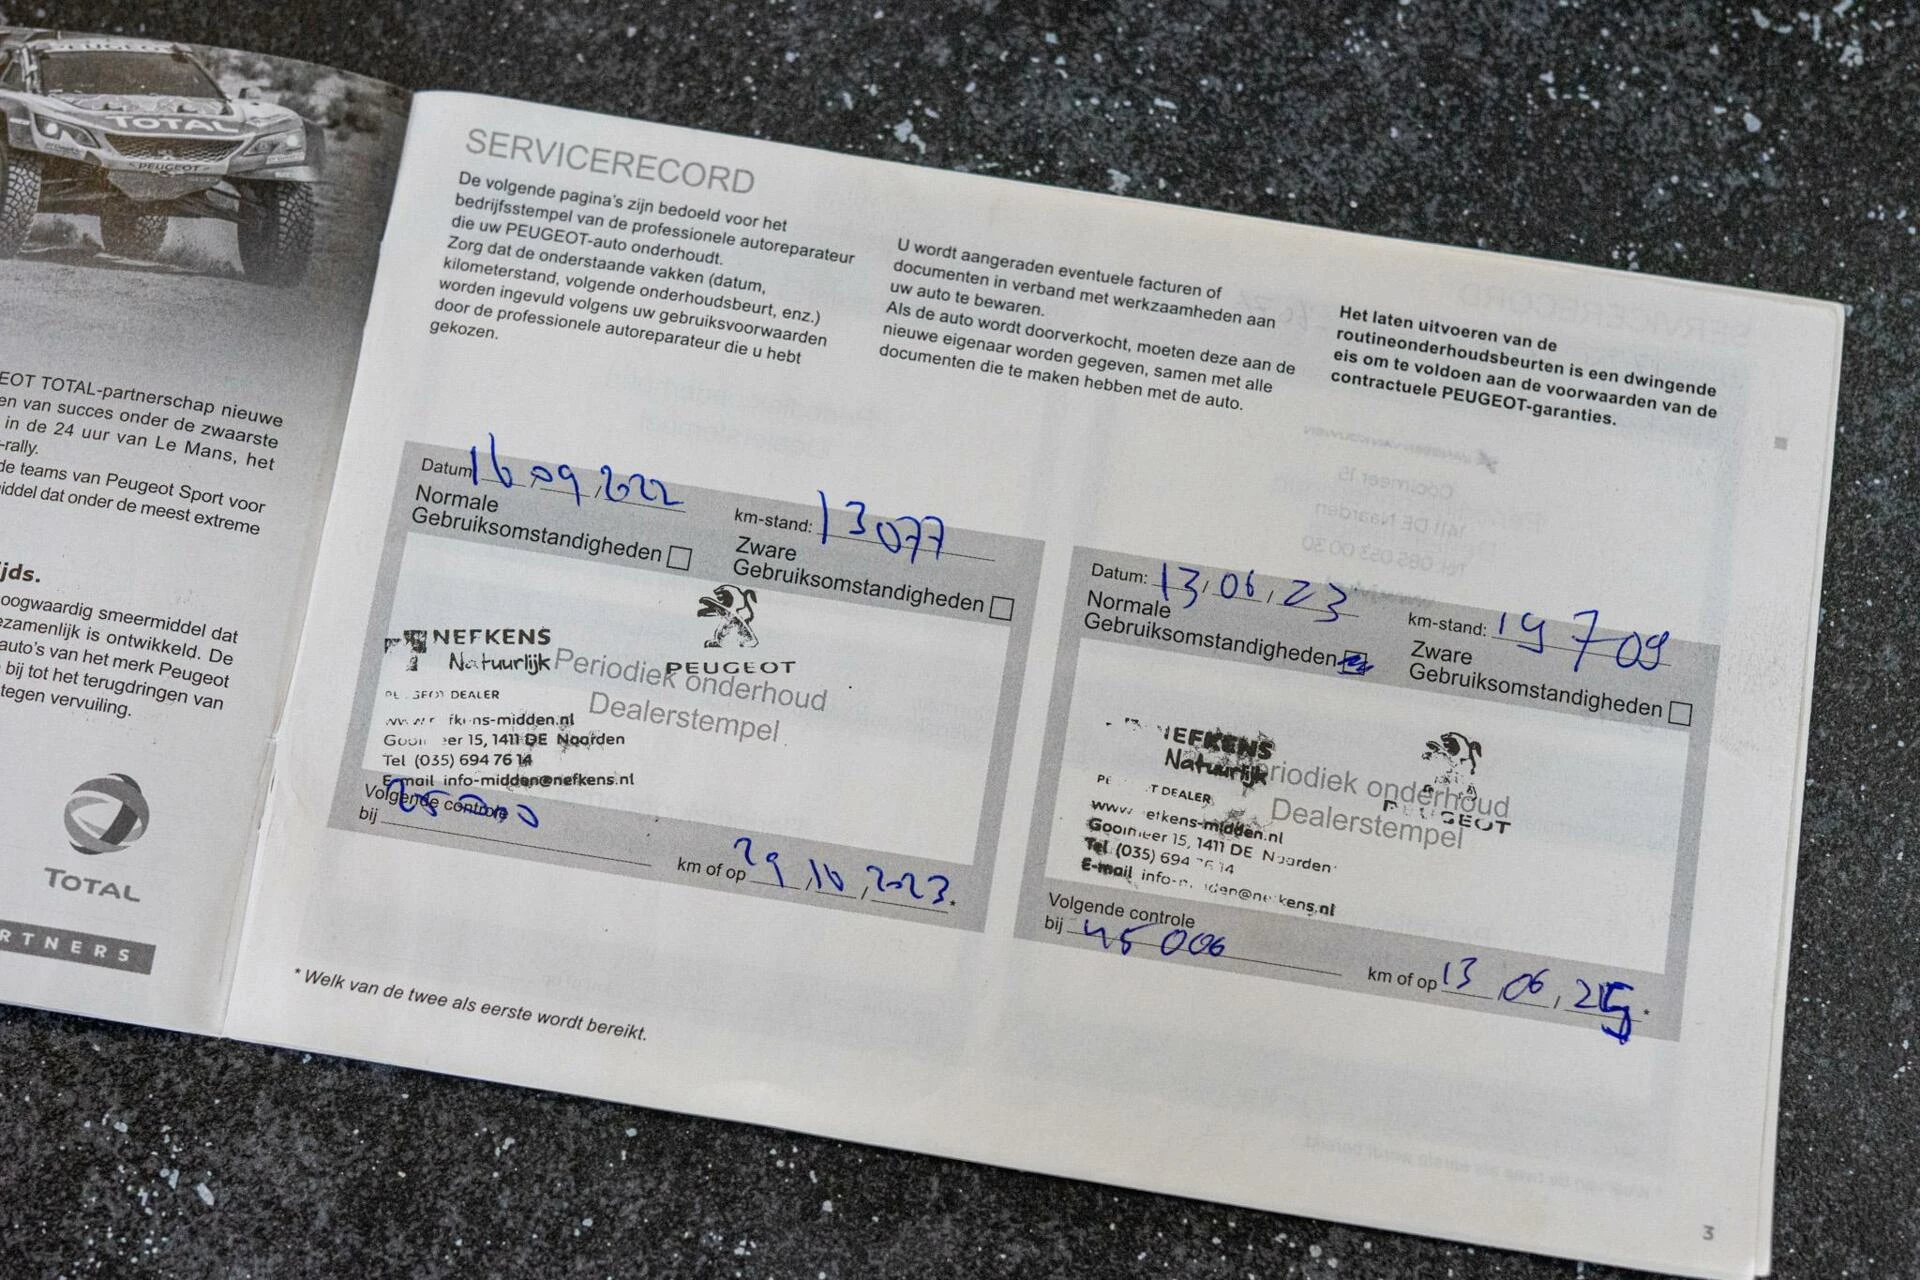 PEUGEOT
TOTAL
PEUGEOT
EOT TOTAL-partnerschap nieuwe
en van succes onder de zwaarste
in de 24 uur van Le Mans, het
-rally.
de teams van Peugeot Sport voor
iddel dat onder de meest extreme
ijds.
oogwaardig smeermiddel dat
ezamenlijk is ontwikkeld. De
auto's van het merk Peugeot
bij tot het terugdringen van
tegen vervuiling.
TOTAL
RTNERS
SERVICERECORD
De volgende pagina's zijn bedoeld voor het
bedrijfsstempel van de professionele autoreparateur
die uw PEUGEOT-auto onderhoudt.
Zorg dat de onderstaande vakken (datum,
kilometerstand, volgende onderhoudsbeurt, enz.)
worden ingevuld volgens uw gebruiksvoorwaarden
door de professionele autoreparateur die u hebt
gekozen.
U wordt aangeraden eventuele facturen of
documenten in verband met werkzaamheden aan
uw auto te bewaren.
Als de auto wordt doorverkocht, moeten deze aan de
nieuwe eigenaar worden gegeven, samen met alle
documenten die te maken hebben met de auto.
Het laten uitvoeren van de
routineonderhoudsbeurten is een dwingende
eis om te voldoen aan de voorwaarden van de
contractuele PEUGEOT-garanties.
Datum 16 09 2022 km-stand: 13077
Normale
Gebruiksomstandigheden
Zware
Gebruiksomstandigheden
NEFKENS
Natuurlijk
PEUGEOT
Periodiek onderhoud
Dealerstempel
DEALER
Naarden
15, 1411 DE Naarden
Tel (035) 694 76 14
E-mail info-midden@nefkens.nl
Volgende controle
bij 25000 km of op 29, 10, 2023.*
Datum: 13, 06, 23 km-stand: 19709
Normale
Gebruiksomstandigheden
Zware
Gebruiksomstandigheden
NEFKENS
Natuurlijk
PEUGEOT
Periodiek onderhoud
Dealerstempel
DEALER
15, 1411 DE Naarden
Tel (035) 694
E-mail
Volgende controle
bij 45000 km of op 13, 06, 25*
* Welk van de twee als eerste wordt bereikt.
3